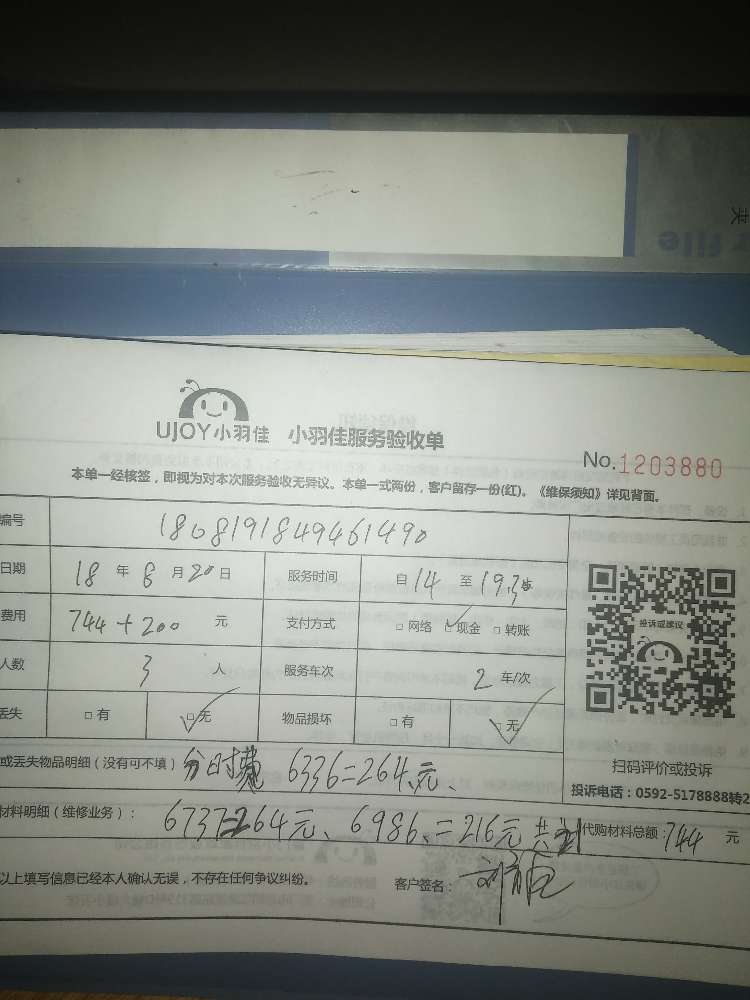 夹
file
UJOY小羽佳 小羽佳服务验收单
No.1203880
本单一经核签，即视为对本次服务验收无异议。本单一式两份，客户留存一份(红)。《维保须知》详见背面。
编号 1808191849461490
日期 18 年 8 月 20 日 服务时间 自 14 至 19.30
费用 744+200 元 支付方式 □ 网络 □ 现金 □ 转账
人数 3 人 服务车次 2 车/次
丢失 □ 有 □ 无 物品损坏 □ 有 □ 无
投诉或建议
扫码评价或投诉
投诉电话：0592-5178888转2
或丢失物品明细（没有可不填） 分时费 6336=264元、
材料明细（维修业务）： 6737=264元、6986、=216元 共计 代购材料总额：744 元
以上填写信息已经本人确认无误，不存在任何争议纠纷。 客户签名：